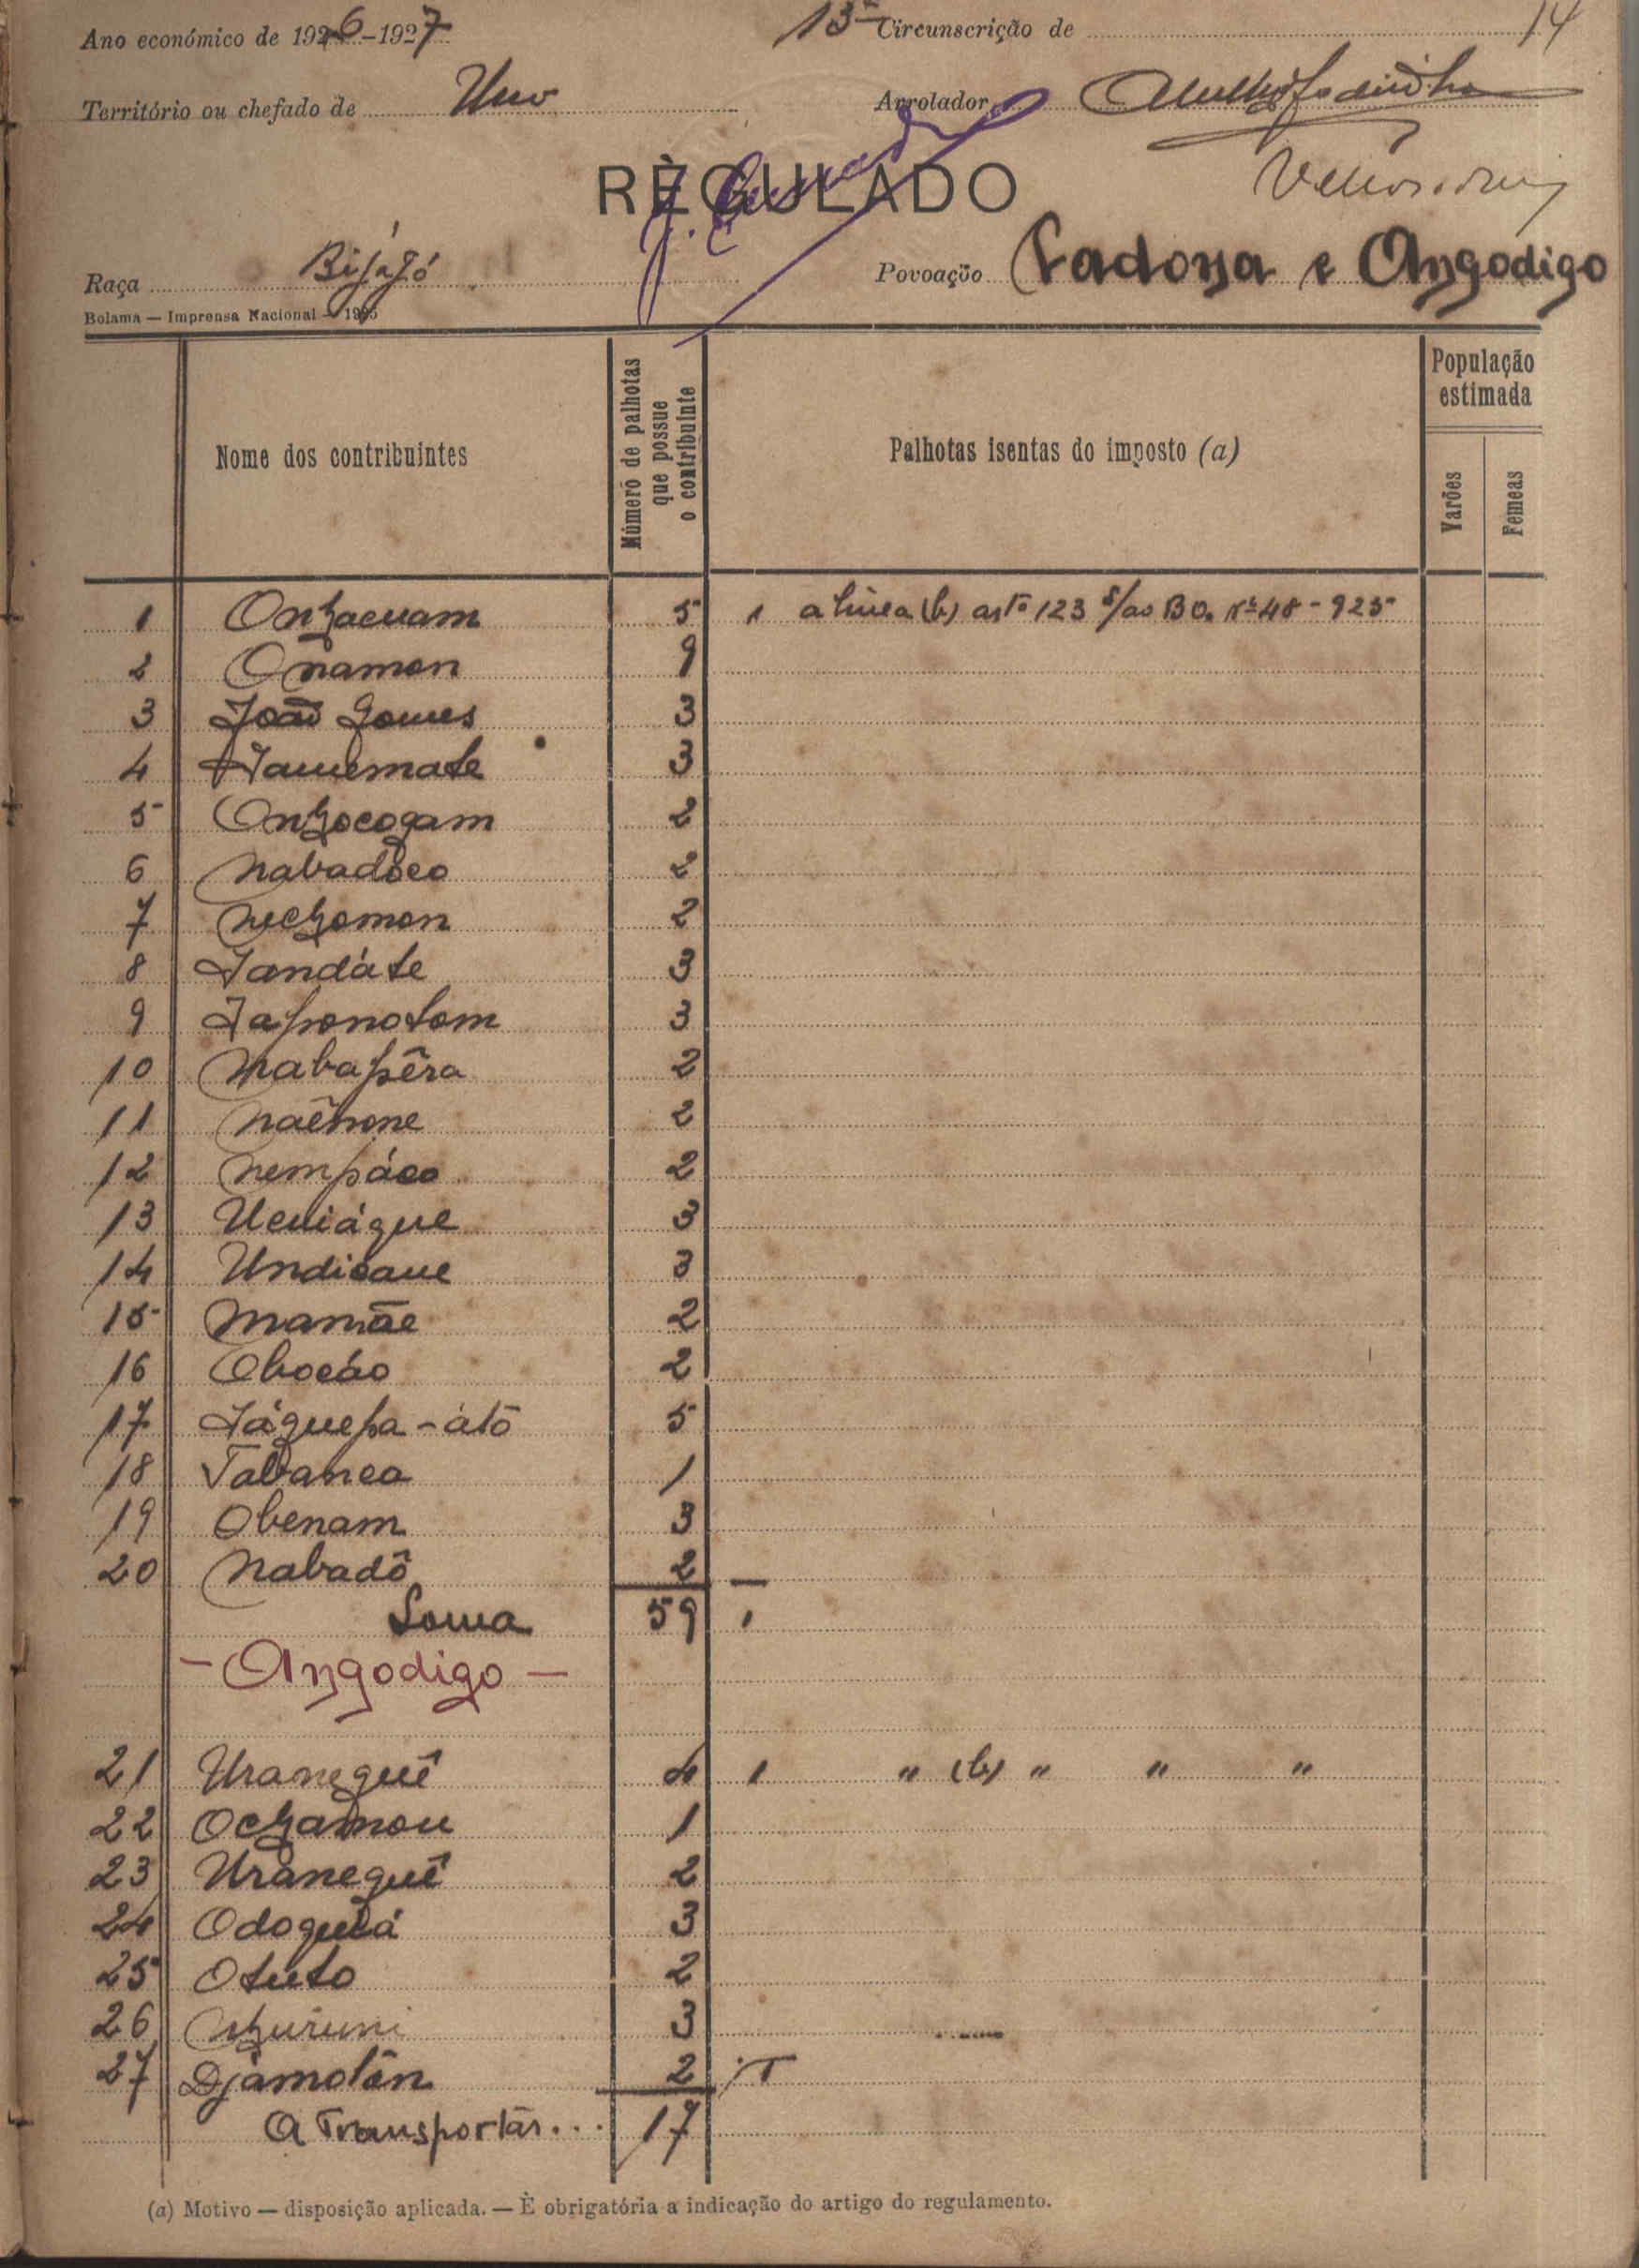 Ano económico de 1926-1927 13ª Circunscrição de 14
Território ou chefado de Uno Arrolador
RÈGULADO
Raça Bijagó Povoação e Angodigo
Bolama — Imprensa Nacional — 1925
Nome dos contribuintes
Número de palhotas que possue o contribuinte
Palhotas isentas do imposto (a)
População estimada
Varões
Femeas
1 Onhacuam 5 1 alinea (b) artº 123 s/ao BO. Nº 48-925
2 Onamon 9
3 João Gomes 3
4 3
5 Onhocogam 2
6 Nabadôco 2
7 Nechomon 2
8 Jandáte 3
9 Japonotom 3
10 Nabapêra 2
11 Naênone 2
12 Nempáco 2
13 Ucuiáque 3
14 Undicaue 3
15 Mamãe 2
16 Obocáo 2
17 Jáguepa-átô 5
18 Tabanca 1
19 Obenam 3
20 Nabadô 2
Soma 59 1
- Angodigo -
21 Uraneguê 4 1 " (b) " " "
22 Ochamou 1
23 Uraneguê 2
24 Odoguiá 3
25 Otuto 2
26 3
27 Djamotôn 2
A Transportar... 17
(a) Motivo — disposição aplicada. — È obrigatória a indicação do artigo do regulamento.